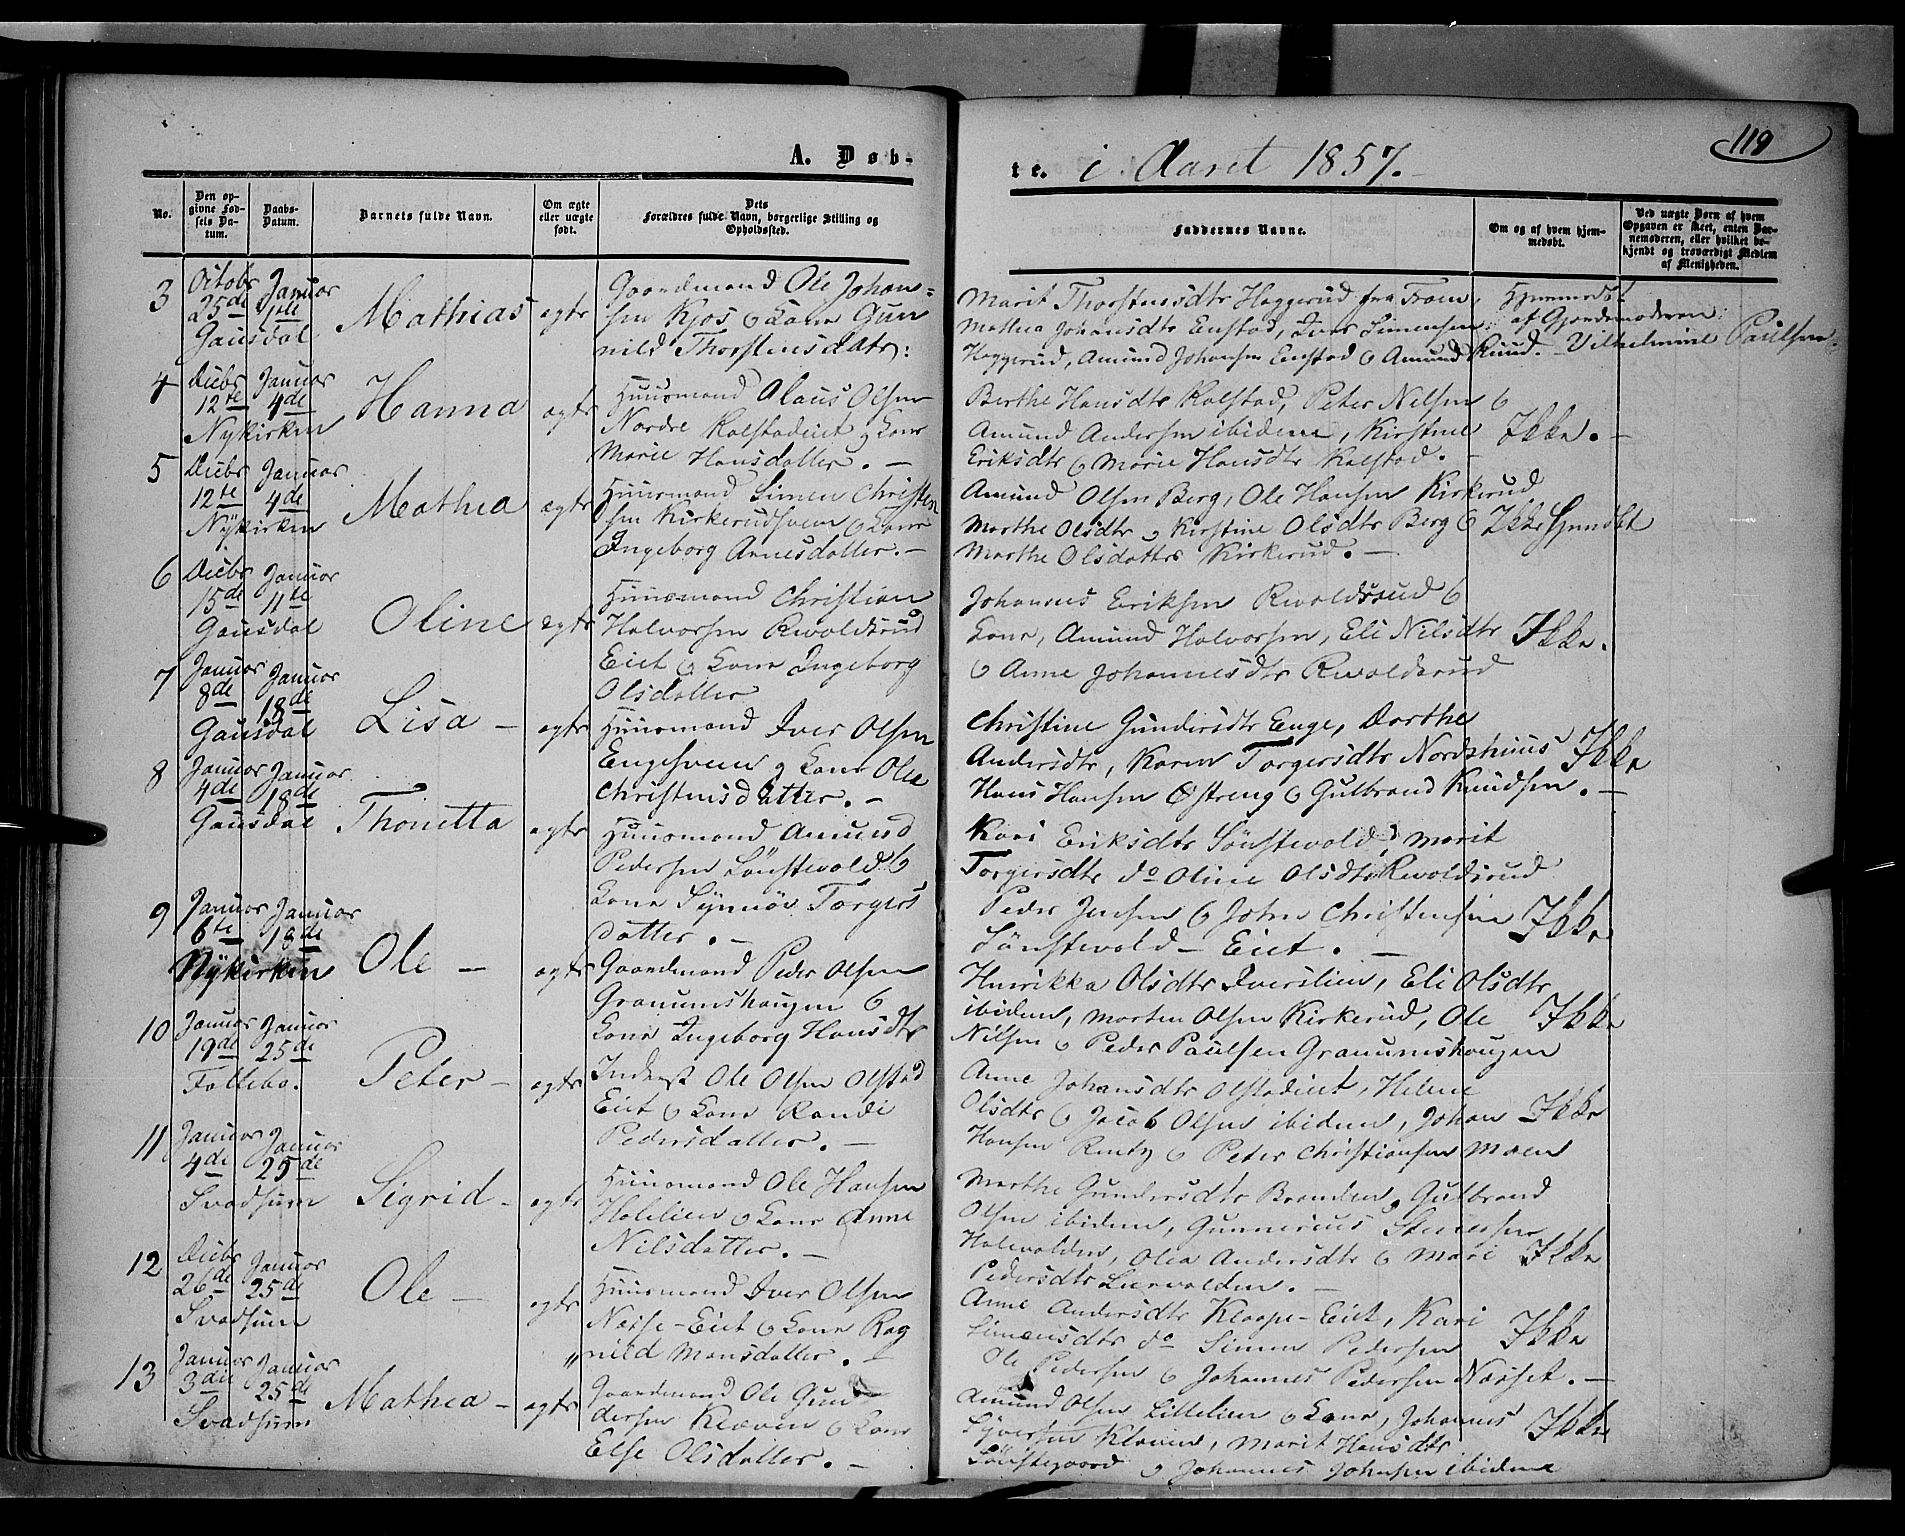 119
A. Døb-
te. i Aaret 1857.
No.
Den op-
givne Fød-
sels Da-
tum.
Daabs-
Datum.
Barnets fulde Navn.
Om ægte
eller uægte
født.
Dets
Forældres fulde Navn, borgerlige Stilling og
Opholdssted.
Faddernes Navne.
Om og af hvem hjem-
medøbt.
Ved uægte Børn af hvem
Opgaven er skeet, enten Bar-
nemoderen, eller hvilket be-
kjendt og troværdigt Medlem
af Menigheden.
3
Octobr
25de
Gausdal
Januar
1ste
Mathias
ægte
Gaardmand Ole Johan-
sen Kjos & Kone Gun
nild Thorstensdatr:
Marit Thorstensdtr Haggerud fra Fron,
Mathea Johansdtr Enstad, Iver Simensen
Haggerud, Amund Johansen Enstad & Amund Ruud.
Hjemmedøbt
af Gjordemoderen
Vilhelmine Paulsen
4
Decbr
12te
Nykirken
Januar
4de
Hanna
ægte
Huusmand Olaus Olsen
Nordre Kalstadeiet & Kone
Marie Hansdatter. —
Berthe Hansdtr Kalstad, Peter Nilsen &
Amund Andersen ibidem, Kirstine
Eriksdtr & Marie Hansdtr Kalstad.
Ikke. —
5
Decbr
12te
Nykirken
Januar
4de
Mathea
ægte
Huusmand Simen Christen
sen Kirkerudsveen & Kone
Ingeborg Arnesdatter. —
Amund Olsen Berg, Ole Hansen Kirkerud
Marthe Olsdtr & Kirstine Olsdtr Berg &
Marthe Olsdatter Kirkerud. —
Ikke Hjemdøbt
6
Decbr
15de
Gausdal
Januar
11te
Oline
ægte
Huusmand Christian
Halvorsen Revoldsrud
Eiet & Kone Ingeborg
Olsdatter
Johannes Eriksen Revoldsrud &
Kone, Amund Halvorsen, Eli Nilsdtr
& Anne Johannesdtr Revoldsrud
Ikke.
7
Januar
8de
Gausdal
Januar
18de
Lisa —
ægte
Huusmand Iver Olsen
Engesveen & Kone Olea
Christensdatter. —
Christine Gundersdtr Enge, Dorthe
Andersdtr, Karen Torgersdtr Nordshuus
Hans Hansen Østreng & Gulbrand Knudsen. —
Ikke
8
Januar
4de
Gausdal
Januar
18de
Thonetta
ægte
Huusmand Amund
Pedersen Sønstevold &
Kone Synnøv Torgers
datter. —
Kari Eriksdtr Sønstevold, Marit
Torgersdtr do Oline Olsdtr Revoldsrud
Peder Jensen & John Christensen
Sønstevold-Eiet. —
Ikke
9
Januar
6te
Nykirken
Januar
18de
Ole —
ægte
Gaardmand Peder Olsen
Granumshaugen &
Kone Ingeborg Hansdtr
Henrikka Olsdtr Iverslien, Eli Olsdtr
ibidem, Morten Olsen Kirkerud, Ole
Nilsen & Peder Paulsen Granumshaugen
Ikke
10
Januar
19de
Follebo.
Januar
25de
Peter —
ægte
Inderst Ole Olsen Olstad
Eiet & Kone Randi
Pedersdatter. —
Anne Johansdtr Olstadeiet, Helene
Olsdtr & Jacob Olsen ibidem, Johan
Hansen Rentz & Peter Christiansen Moen
Ikke
11
Januar
4de
Svadsum
Januar
25de
Sigrid —
ægte
Huusmand Ole Hansen
Holelien & Kone Anne
Nilsdatter. —
Marthe Gundersdtr Branden, Gulbrand
Olsen ibidem, Gunnerius
Holevolden, Olea Andersdtr & Mari
Pedersdtr Liervolden. —
Ikke
12
Decbr
26de
Svadsum
Januar
25de
Ole —
ægte
Huusmand Iver Olsen
Eiet & Kone Rag
„nild Monsdatter. —
Anne Andersdtr Klaape-Eiet, Kari
Simensdtr do Simen Pedersen
Ole Pedersen & Johannes Pedersen Næsset. —
Ikke
13
Januar
3die
Svadsum
Januar
25de
Mathea —
ægte
Gaardmand Ole Gun
dersen Kleven & Kone
Else Olsdatter. —
Amund Olsen Lillelien & Kone, Johannes
Syversen Kleven, Marit Hansdtr
Sønstegaard & Johannes Johnsen ibidem
Ikke